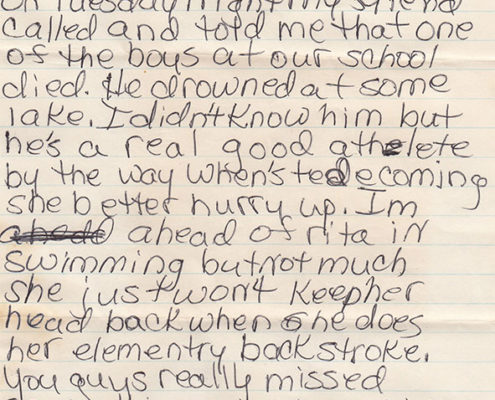 On Tuesday night my friend
called and told me that one
of the boys at our school
died. He drowned at some
lake. I didn't know him but
he's a real good athelete
by the way when's ted ecoming
she better hurry up. I'm
ahead of rita in
swimming but not much
she just won't keep her
head back when she does
her elementry backstroke.
You guys really missed